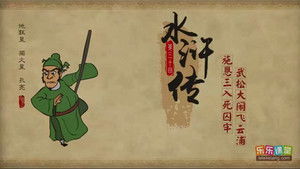 地狂星
独火星
孔亮
水浒传
第三十回
施恩三入死囚牢
武松大闹飞云浦
乐乐课堂
leleketang.com